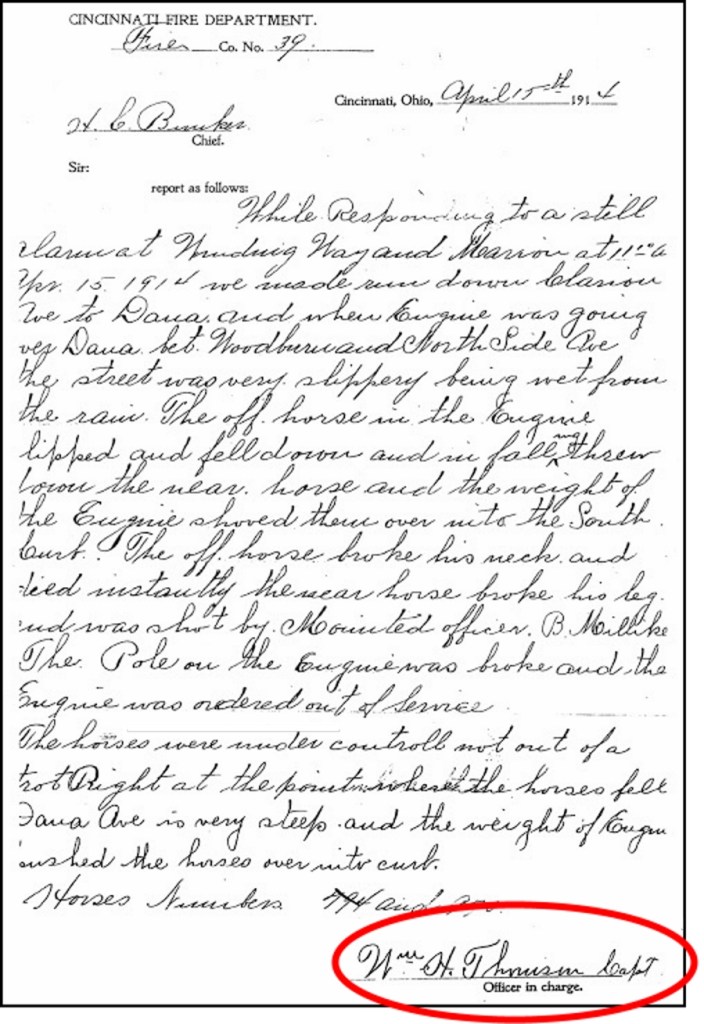 CINCINNATI FIRE DEPARTMENT.
Fire Co. No. 39.
Cincinnati, Ohio, April 15th 1914
H. C. Bunker
Chief.
Sir:
report as follows:
While Responding to a still
alarm at Winding Way and Marion at 11
Apr. 15. 1914 we made run down Clarion
Ave to Dana. and when Engine was going
over Dana. bet. Woodburn and North Side Ave
the street was very slippery being wet from
the rain. The off. horse in the Engine
slipped and fell down and in falling threw
down the near. horse and the weight of
the Engine shoved them over into the South
Curb. The off. horse broke his neck and
died instantly the near horse broke his leg.
and was shot by. Mounted officer. B. Millike
The. Pole on the Engine was broke and the
Engine was ordered out of Service
The horses were under controll not out of a
trot Right at the point where the horses fell
Dana Ave is very steep. and the weight of Engin
pushed the horses over into curb.
Horses Numbers 794 and
Wm H. Thomson Capt
Officer in charge.